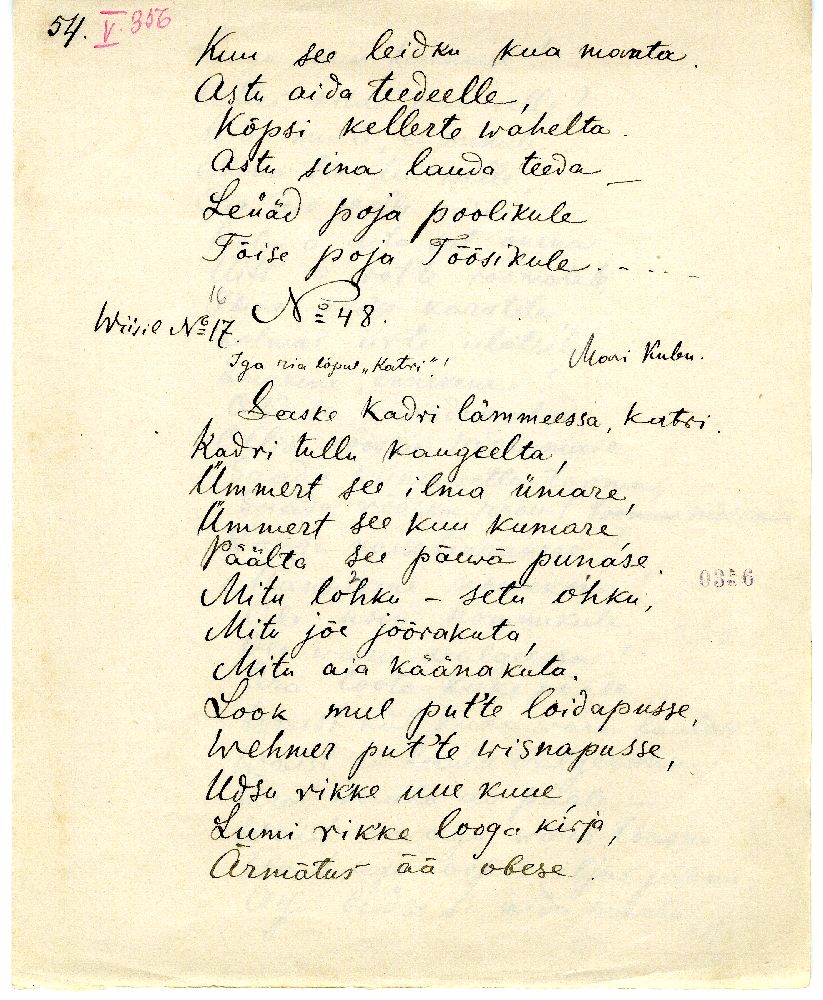 54. V. 356
Kuu see leidku kua maata.
Astu aida teedeelle,
Kõpsi kellerte wahelta.
Astu sina lauda teeda –
Leüäd poja poolikule
Tõise poja Töösikule. - . . . -
16
Wiisil № 17 № 48.
Iga ria lõpul „Katri"!
Mari Kubu.
Laske Kadri lämmeessa, katri.
Kadri tullu kaugeelta,
Ümmert see ilma ümare,
Ümmert see kuu kumare,
Päälta see päewä punase.
0356
Mitu lõhku – setu õhku,
Mitu jõe jöörakuta,
Mitu aia käänakuta.
Look mul put'te loidapusse,
Wehmer put'te wisnapusse,
Udsu rikke uue kuue
Lumi rikke looga kirja,
Ärmätus ää obese.